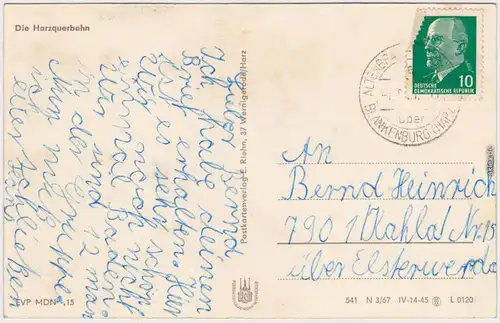 Die Harzquerbahn
Lieber Bernd
Ich habe deinen
Brief erhalten. Hier
war es sehr schön
einmal Baden
in der Gruppe
sind 12 man
nur
Postkartenverlag E. Riehn, 37 Wernigerode/Harz
EVP MDN -,15
DEUTSCHE
DEMOKRATISCHE REPUBLIK
10
über
BLANKENBURG (HARZ)
An
Bernd Heinrich
7901 Kahla Nr. 15
über Elsterwerda
541 N 3/67 IV-14-45 L 0120